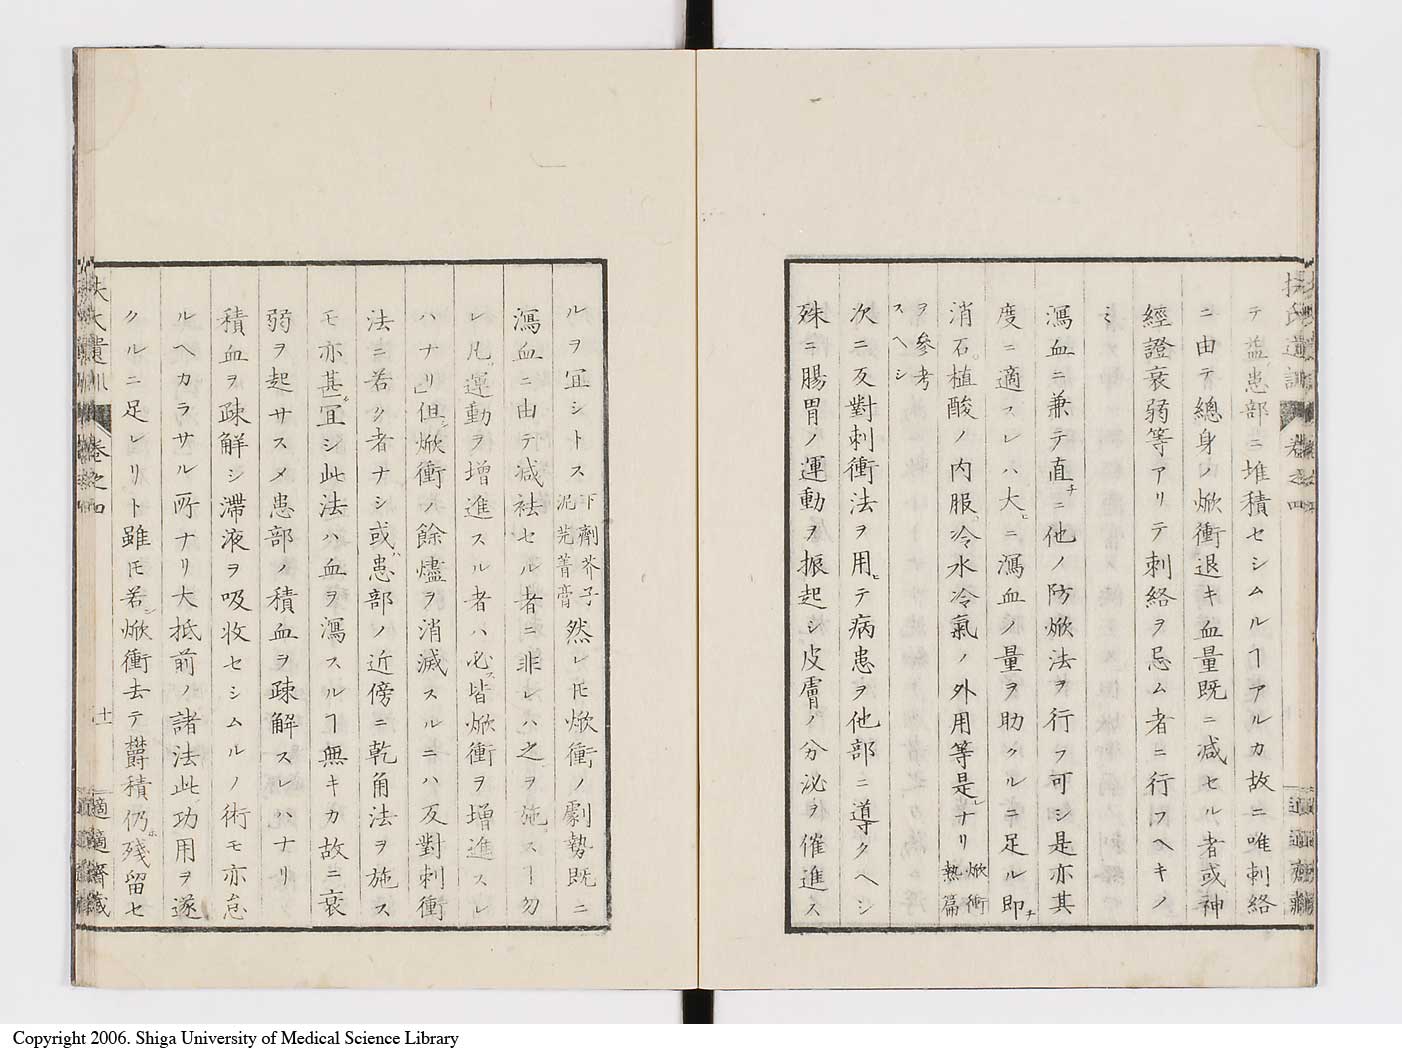 テ益患部ニ堆積セシムルヿアルカ故ニ唯刺絡
ニ由テ總身ノ焮衝退キ血量既ニ減セル者或神
經證衰弱等アリテ刺絡ヲ忌ム者ニ行フヘキノ
ミ
瀉血ニ兼テ直チニ他ノ防焮法ヲ行フ可シ是亦其
度ニ適フレハ大ヒニ瀉血ノ量ヲ助クルニ足ル即チ
消石。植酸ノ内服。冷水冷氣ノ外用等是レナリ焮衝熱篇
ヲ參考スヘシ
次ニ反對刺衝法ヲ用ヒテ病患ヲ他部ニ導クヘシ
殊ニ腸胃ノ運動ヲ振起シ皮膚ノ分泌ヲ催進ス
ルヲ冝シトス下劑芥子泥芫菁膏然レ𪜈焮衝ノ劇勢既ニ
瀉血ニ由テ減袪セル者ニ非レハ之ヲ施スヿ勿
レ凡運動ヲ增進スル者ハ必ス皆焮衝ヲ增進スレ
ハナリ」但シ焮衝ノ餘燼ヲ消滅スルニハ反對刺衝
法ニ若ク者ナシ或ハ患部ノ近傍ニ乾角法ヲ施ス
モ亦甚タ冝シ此法ハ血ヲ瀉スルヿ無キカ故ニ衰
弱ヲ起サスメ患部ノ積血ヲ疎解スレハナリ
積血ヲ疎解シ滯液ヲ吸收セシムルノ術モ亦怠
ルヘカラサル所ナリ大抵前ノ諸法此功用ヲ遂
クルニ足レリト雖𪜈若シ焮衝去テ欝積仍ホ殘留セ
扶氏遺訓 卷之四 十一 適適齋藏
Copyright 2006. Shiga University of Medical Science Library